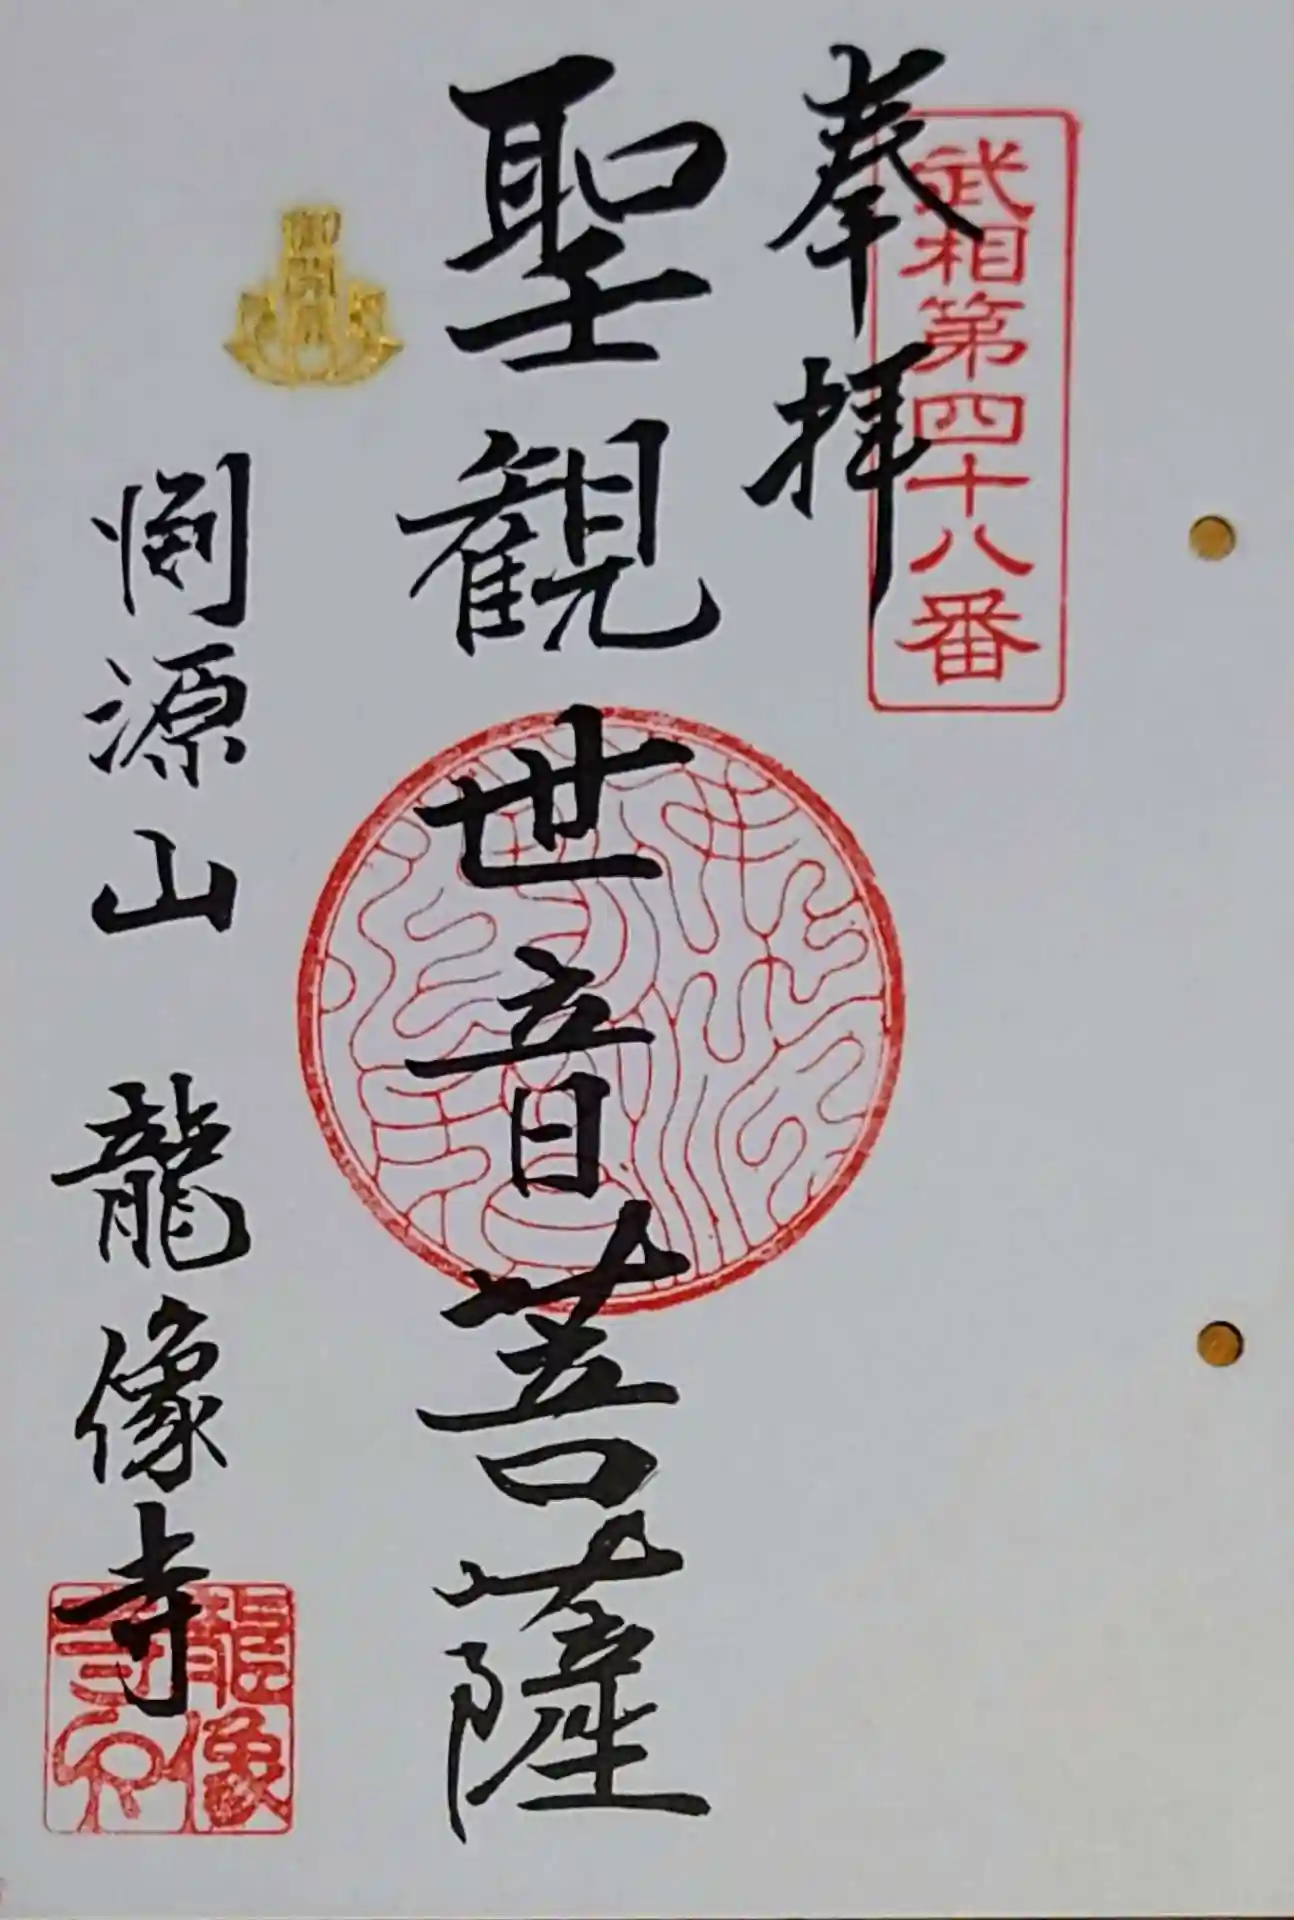 武相第四十八番
奉拝
聖観世音菩薩
御開帳
惻源山 龍像寺
龍像
寺印